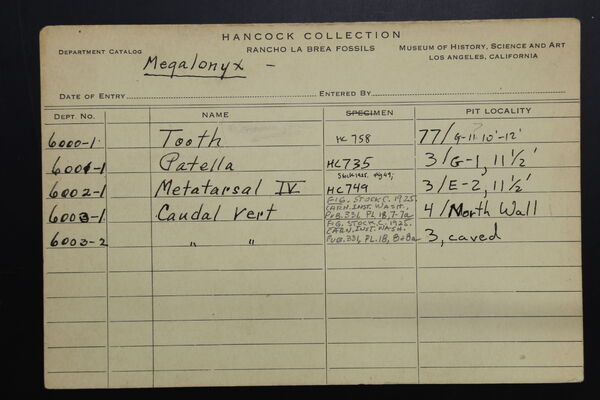 HANCOCK COLLECTION
DEPARTMENT CATALOG RANCHO LA BREA FOSSILS MUSEUM OF HISTORY, SCIENCE AND ART
LOS ANGELES, CALIFORNIA
Megalonyx -
DATE OF ENTRY ENTERED BY
DEPT. NO. NAME SPECIMEN PIT LOCALITY
6000-1 Tooth HC 758 77/G-11 10'-12'
6001-1 Patella HC735 3/G-1, 11½'
6002-1 Metatarsal IV HC749 3/E-2, 11½'
6003-1 Caudal Vert FIG. STOCK C. 1925. 4/North Wall
CARN. INST. WASH.,
PUB. 331, PL. 18, 7-7a
6003-2 " " FIG. STOCK C. 1925. 3, caved
CARN. INST. WASH.
PUB. 331, PL. 18, 8+8a